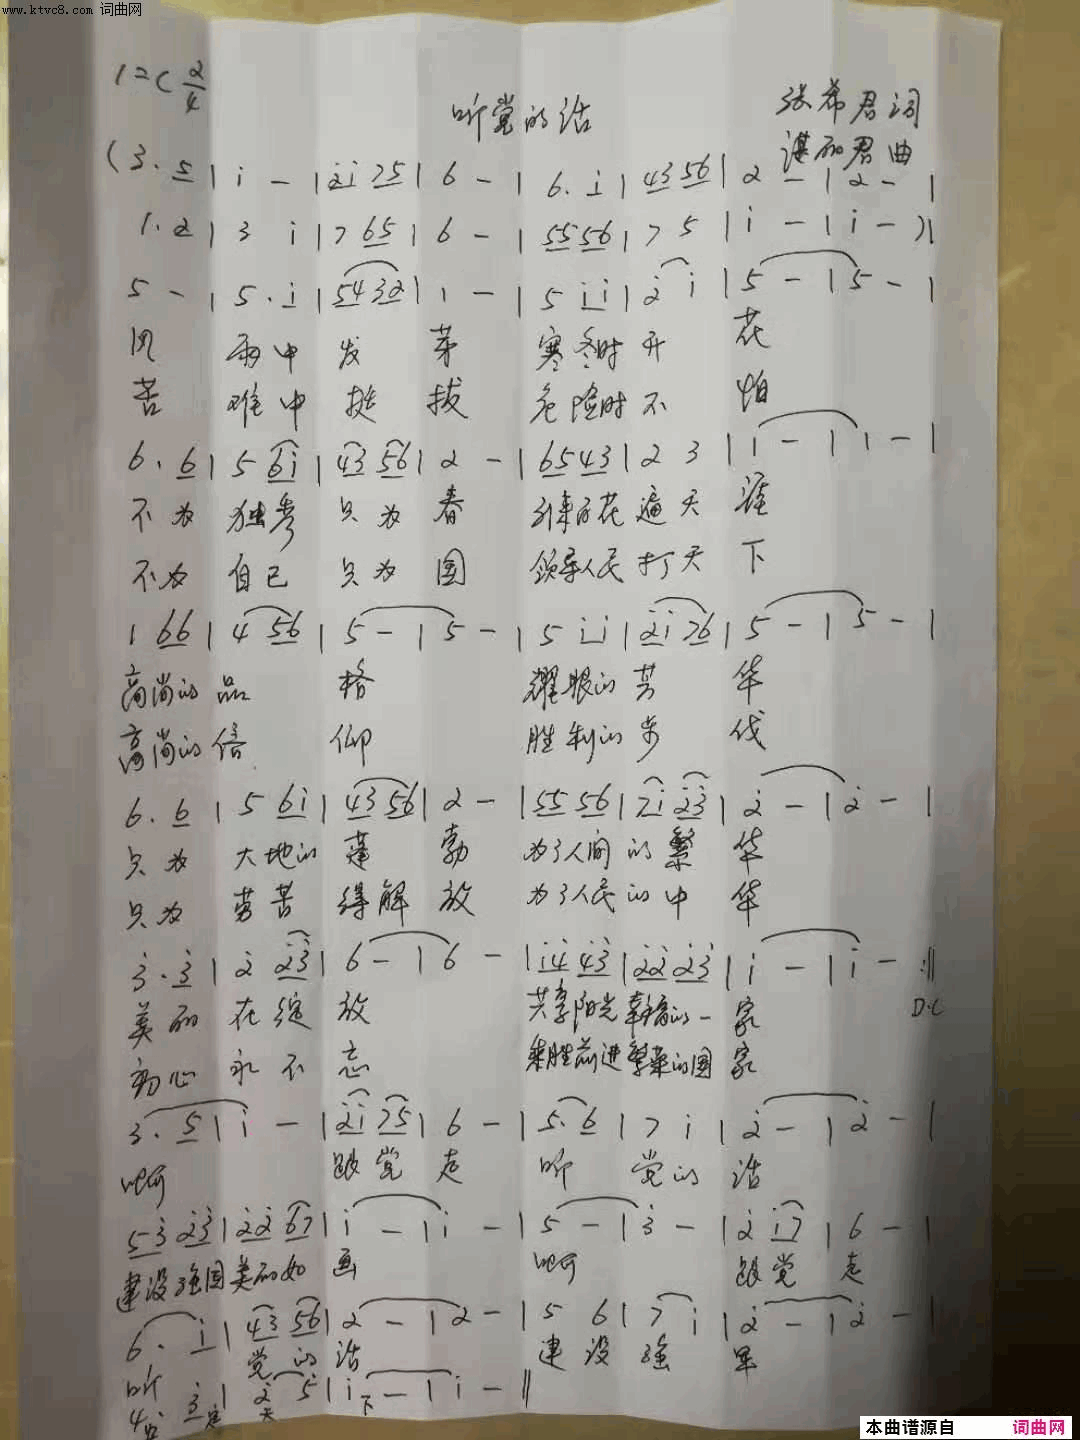 www.ktvc8.com 词曲网
1=C 2/4
听党的话
张希君词
谌丽君曲
(3. 5 | i - | 2i 75 | 6 - | 6. i | 43 56 | 2 - | 2 - |
1. 2 | 3 i | 7 65 | 6 - | 55 56 | 7 5 | i - | i - )|
5 - | 5. i | 5432 | 1 - | 5 ii | 2 i | 5 - | 5 - |
风 雨中 发 芽 寒冬时 开 花
苦 难中 挺 拔 危险时 不 怕
6. 6 | 5 6i | 43 56 | 2 - | 6543 | 2 3 | 1 - | 1 - |
不为 独秀 只为 春 引来百花 遍天 涯
不为 自己 只为 国 领导人民 打天 下
1 66 | 4 56 | 5 - | 5 - | 5 ii | 2i 76 | 5 - | 5 - |
高尚的 品 格 耀眼的 芳 华
高尚的 信 仰 胜利的 步 伐
6. 6 | 5 6i | 43 56 | 2 - | 55 56 | 7i 23 | 2 - | 2 - |
只为 大地的 蓬 勃 为了人间 的繁 华
只为 劳苦 得解 放 为了人民 的中 华
3. 3 | 2 23 | 6 - | 6 - | i4 43 | 22 23 | i - | i - :||
D.C
美丽 在绽 放 共享阳光 幸福的一 家
初心 永不 忘 乘胜前进 繁荣的国 家
3. 5 | i - | 2i 75 | 6 - | 5. 6 | 7 i | 2 - | 2 - |
啊 跟党 走 听 党的 话
53 23 | 22 67 | i - | i - | 5 - | 3 - | 2 i7 | 6 - |
建设强国 美丽如 画 啊 跟党 走
6. i | 43 56 | 2 - | 2 - | 5 6 | 7 i | 2 - | 2 - |
听 党的 话 建设 强 军
4. 3 | 2 5 | i - | i - ||
安 定 天 下
本曲谱源自 词曲网